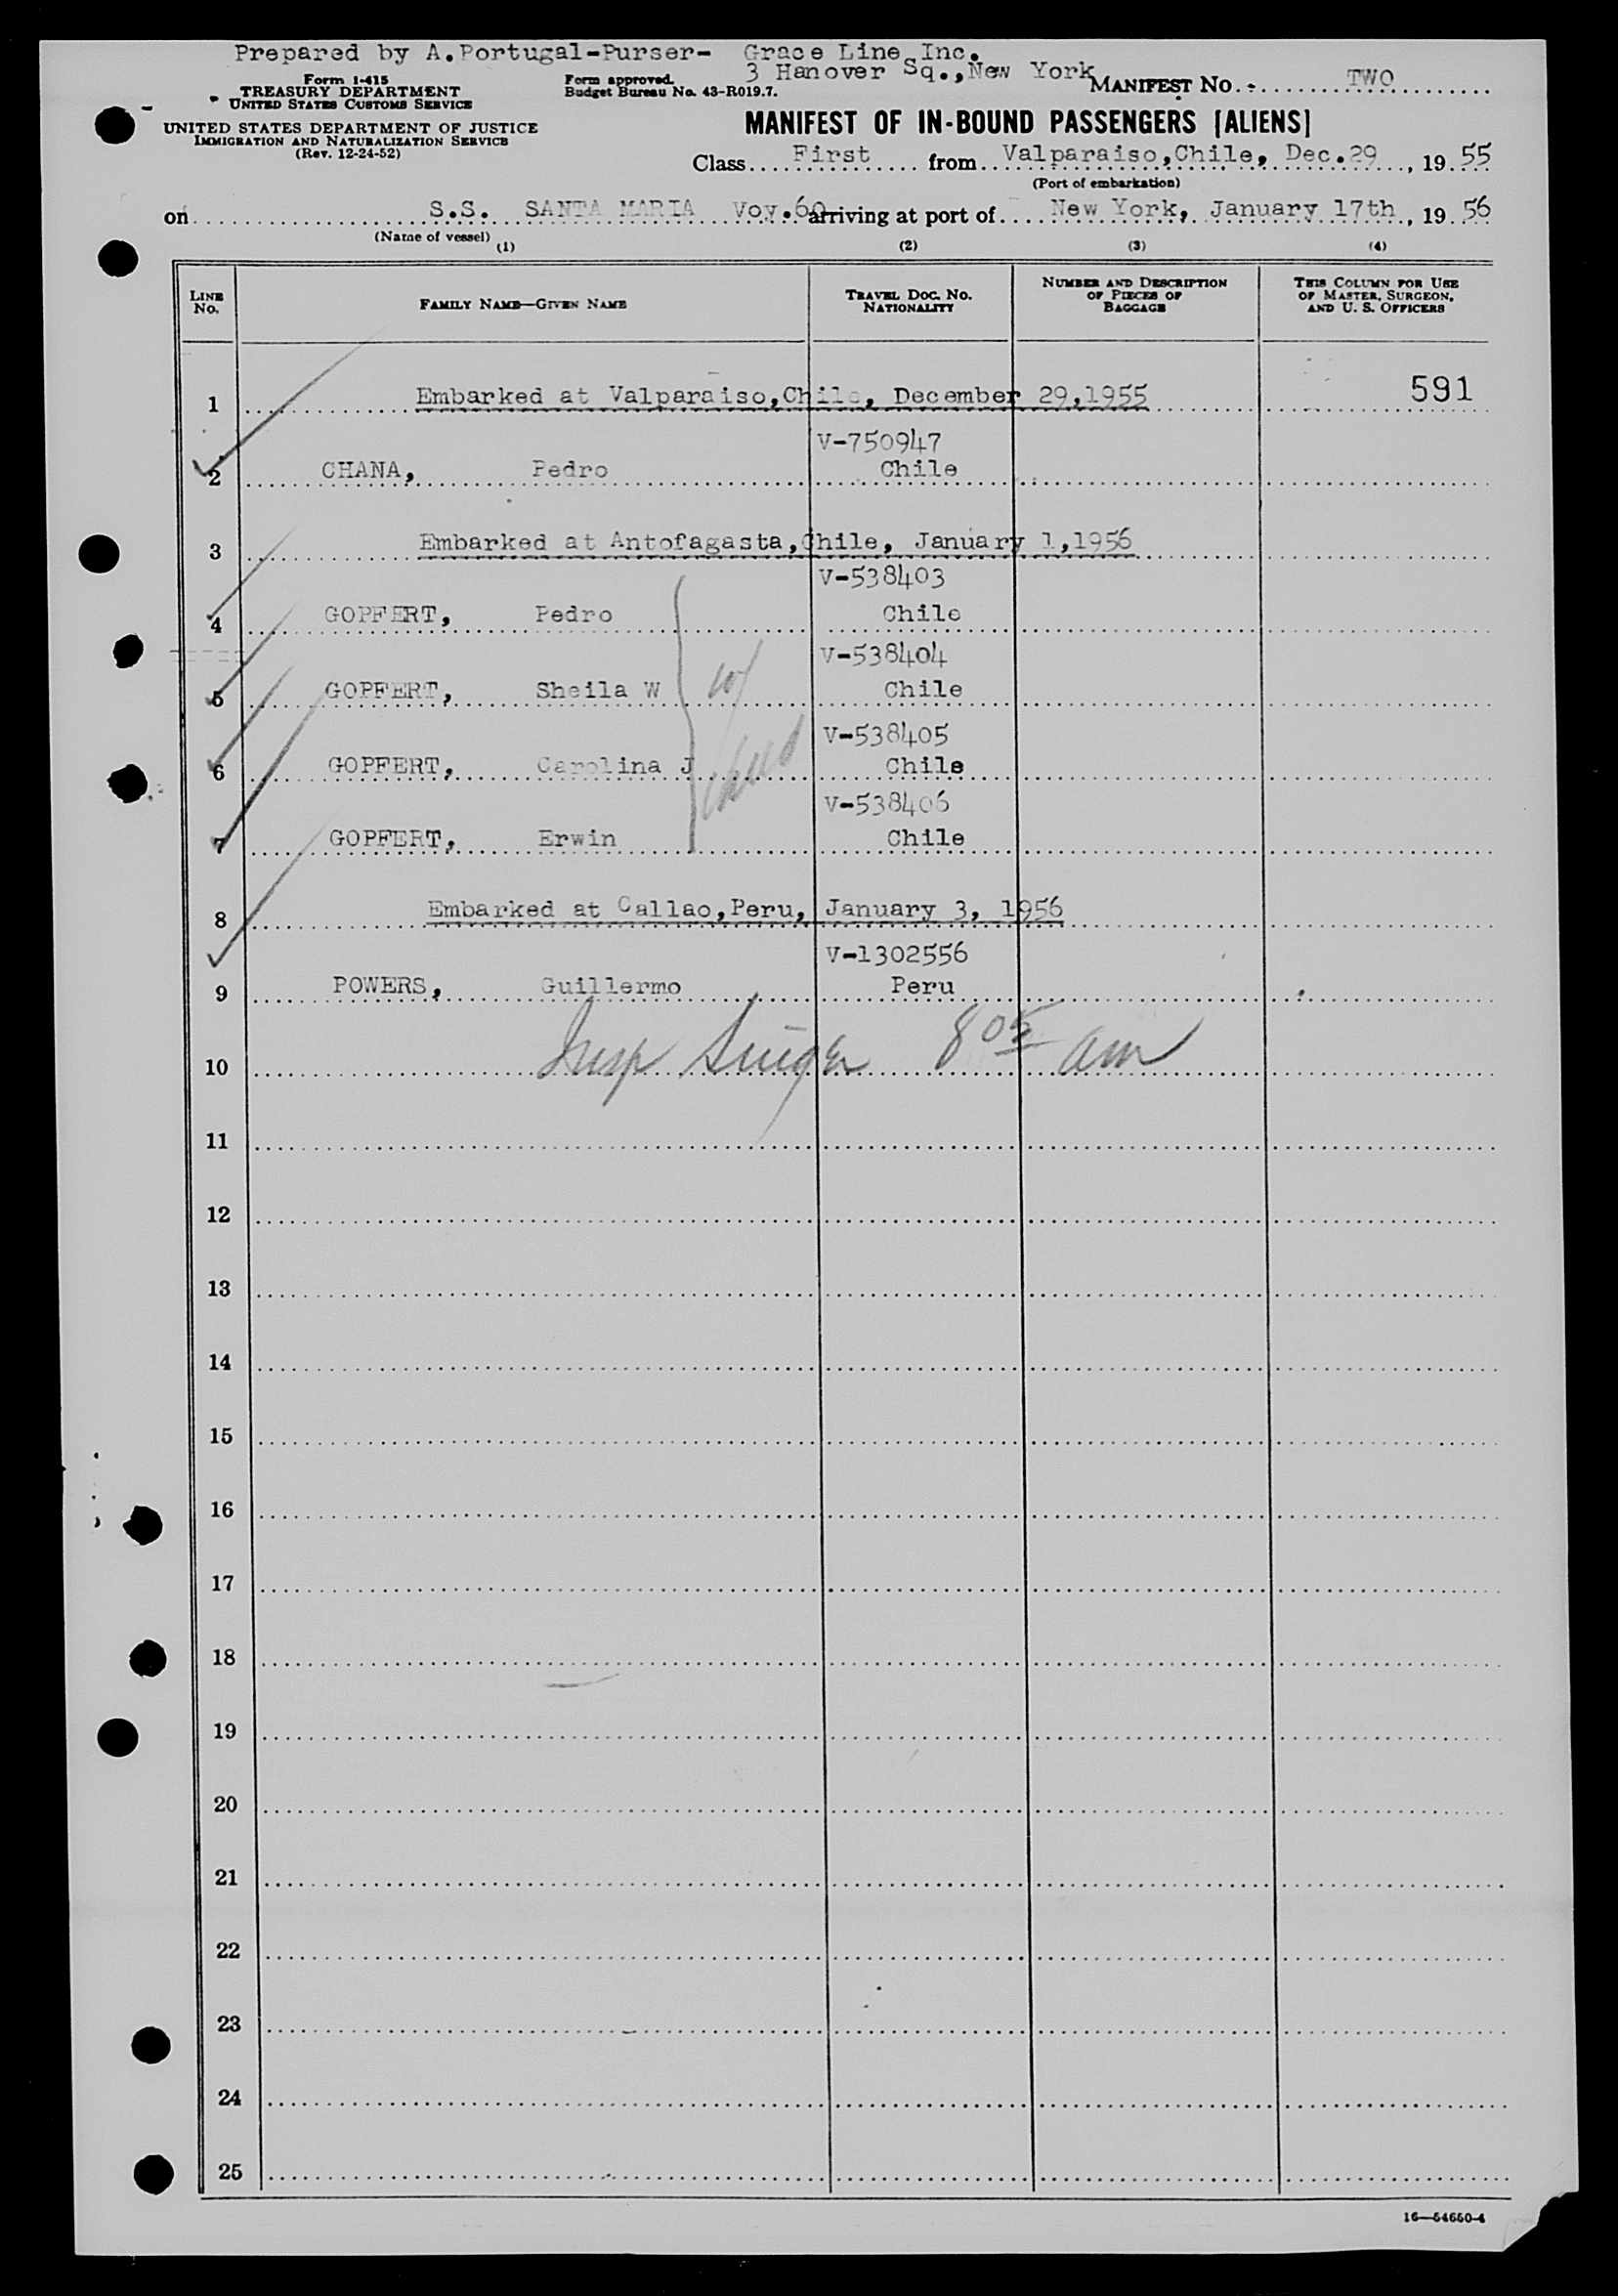 Prepared by A.Portugal-Purser- Grace Line Inc.
3 Hanover Sq.,New York
Form I-415
TREASURY DEPARTMENT
UNITED STATES CUSTOMS SERVICE
Form approved.
Budget Bureau No. 43-R019.7.
MANIFEST No. TWO
UNITED STATES DEPARTMENT OF JUSTICE
IMMIGRATION AND NATURALIZATION SERVICE
(Rev. 12-24-52)
MANIFEST OF IN-BOUND PASSENGERS [ALIENS]
Class First from Valparaiso,Chile, Dec.29, 1955
(Port of embarkation)
on S.S. SANTA MARIA Voy.60 arriving at port of New York, January 17th, 1956
(Name of vessel)
(1) (2) (3) (4)
LINE No. FAMILY NAME—GIVEN NAME TRAVEL DOC. No. NATIONALITY NUMBER AND DESCRIPTION OF PIECES OF BAGGAGE THIS COLUMN FOR USE OF MASTER, SURGEON, AND U. S. OFFICERS
1 Embarked at Valparaiso,Chile, December 29,1955 591
V-750947
2 CHANA, Pedro Chile
3 Embarked at Antofagasta,Chile, January 1,1956
V-538403
4 GOPFERT, Pedro Chile
V-538404
5 GOPFERT, Sheila W Chile
V-538405
6 GOPFERT, Carolina J Chile
V-538406
7 GOPFERT, Erwin Chile
8 Embarked at Callao,Peru, January 3, 1956
V-1302556
9 POWERS, Guillermo Peru
10 Insp Singer 805 am
11
12
13
14
15
16
17
18
19
20
21
22
23
24
25
16—54650-4